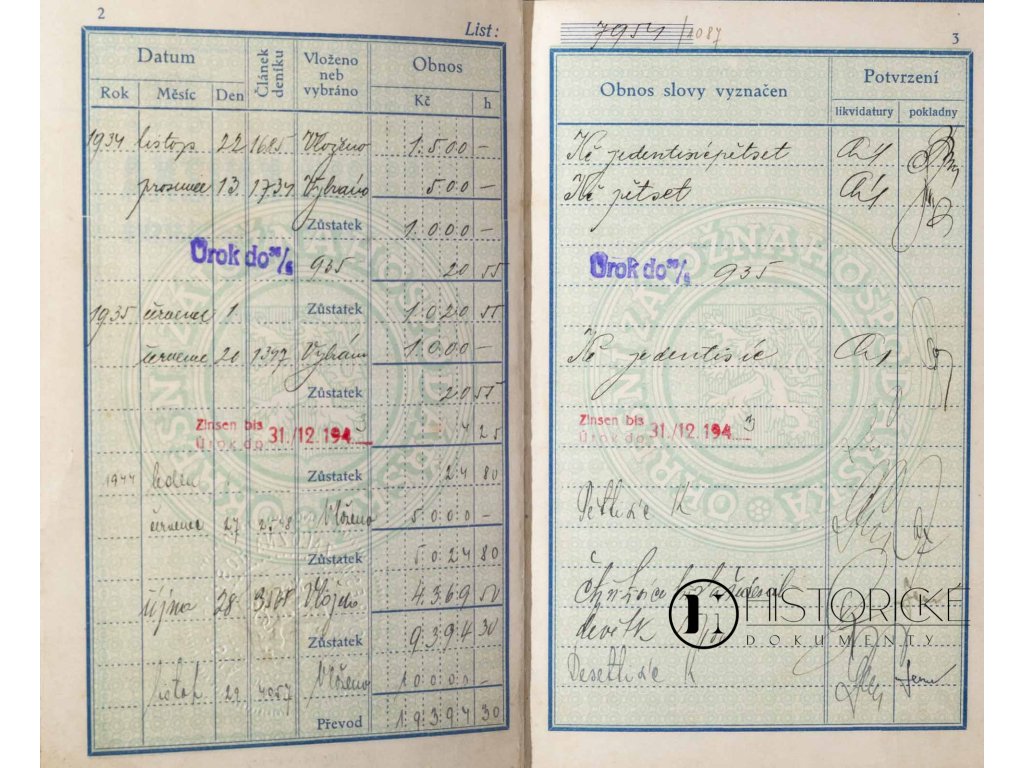 2
List:
Datum
Článek deníku
Vloženo neb vybráno
Obnos
Rok Měsíc Den Kč h
1934 listop 22 1685 Vloženo 1500 —
prosince 13 1734 Vybráno 500 —
Zůstatek 1000 —
Úrok do 30/6 935 20 55
1935 července 1 Zůstatek 1020 55
července 20 Vybráno 1000 —
Zůstatek 20 55
Zinsen bis
Úrok do 31./12. 1943 4 25
1944 leden Zůstatek 24 80
července 27 Vloženo 5000 —
Zůstatek 5024 80
října 28 Vloženo 4369 50
Zůstatek 9394 30
listop 29 4057 Vloženo 10000 —
Převod 19394 30
7954/1087
3
Obnos slovy vyznačen
Potvrzení
likvidatury pokladny
Kč jedentisícpětset
Kč pětset
Úrok do 30/6 935
Kč jedentisíc
Zinsen bis
Úrok do 31./12. 1943
Pěttisíc K
devět K
Desettisíc K
HISTORICKÉ
DOKUMENTY